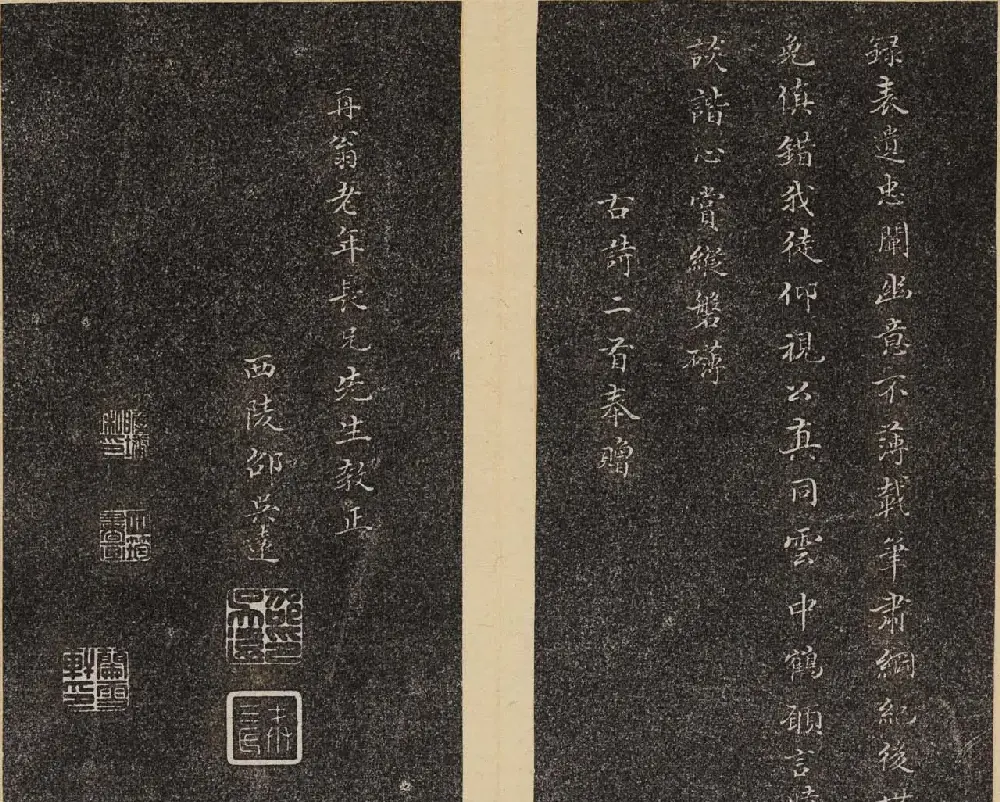 録表遺忠闡幽意不薄載筆肅綱紀後
免傎錯我徒仰視公真同雲中鶴願言
談諧心賞縱磐礴
古詩二首奉贈
再翁老年長兄先生教正
西陵邵吳遠